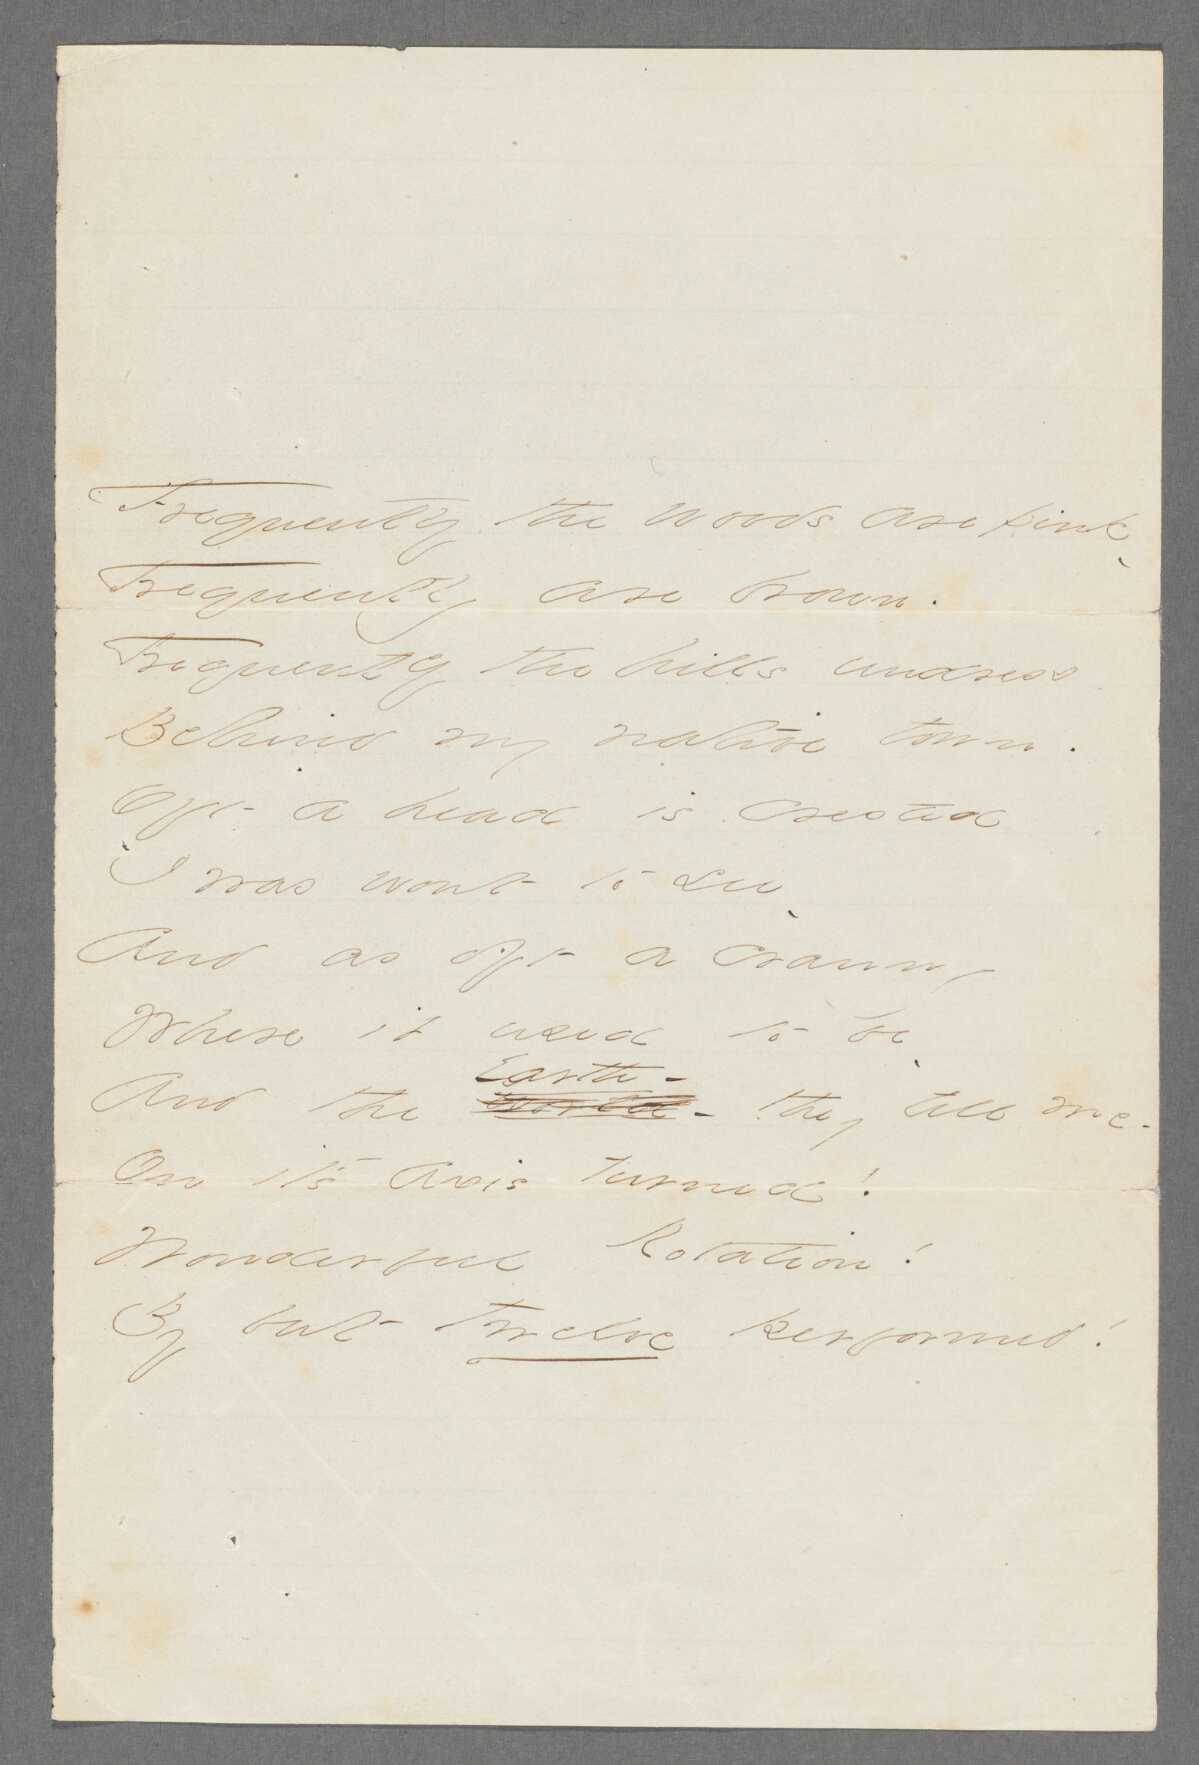 Frequently the woods are pink,
Frequently are brown.
Frequently the hills undress
Behind my native town.
Oft a head is crested
I was wont to see,
And as oft a cranny
Where it used to be,
Earth -
And the World - they tell me -
On it's Axis turned!
Wonderful Rotation!
By but twelve performed!